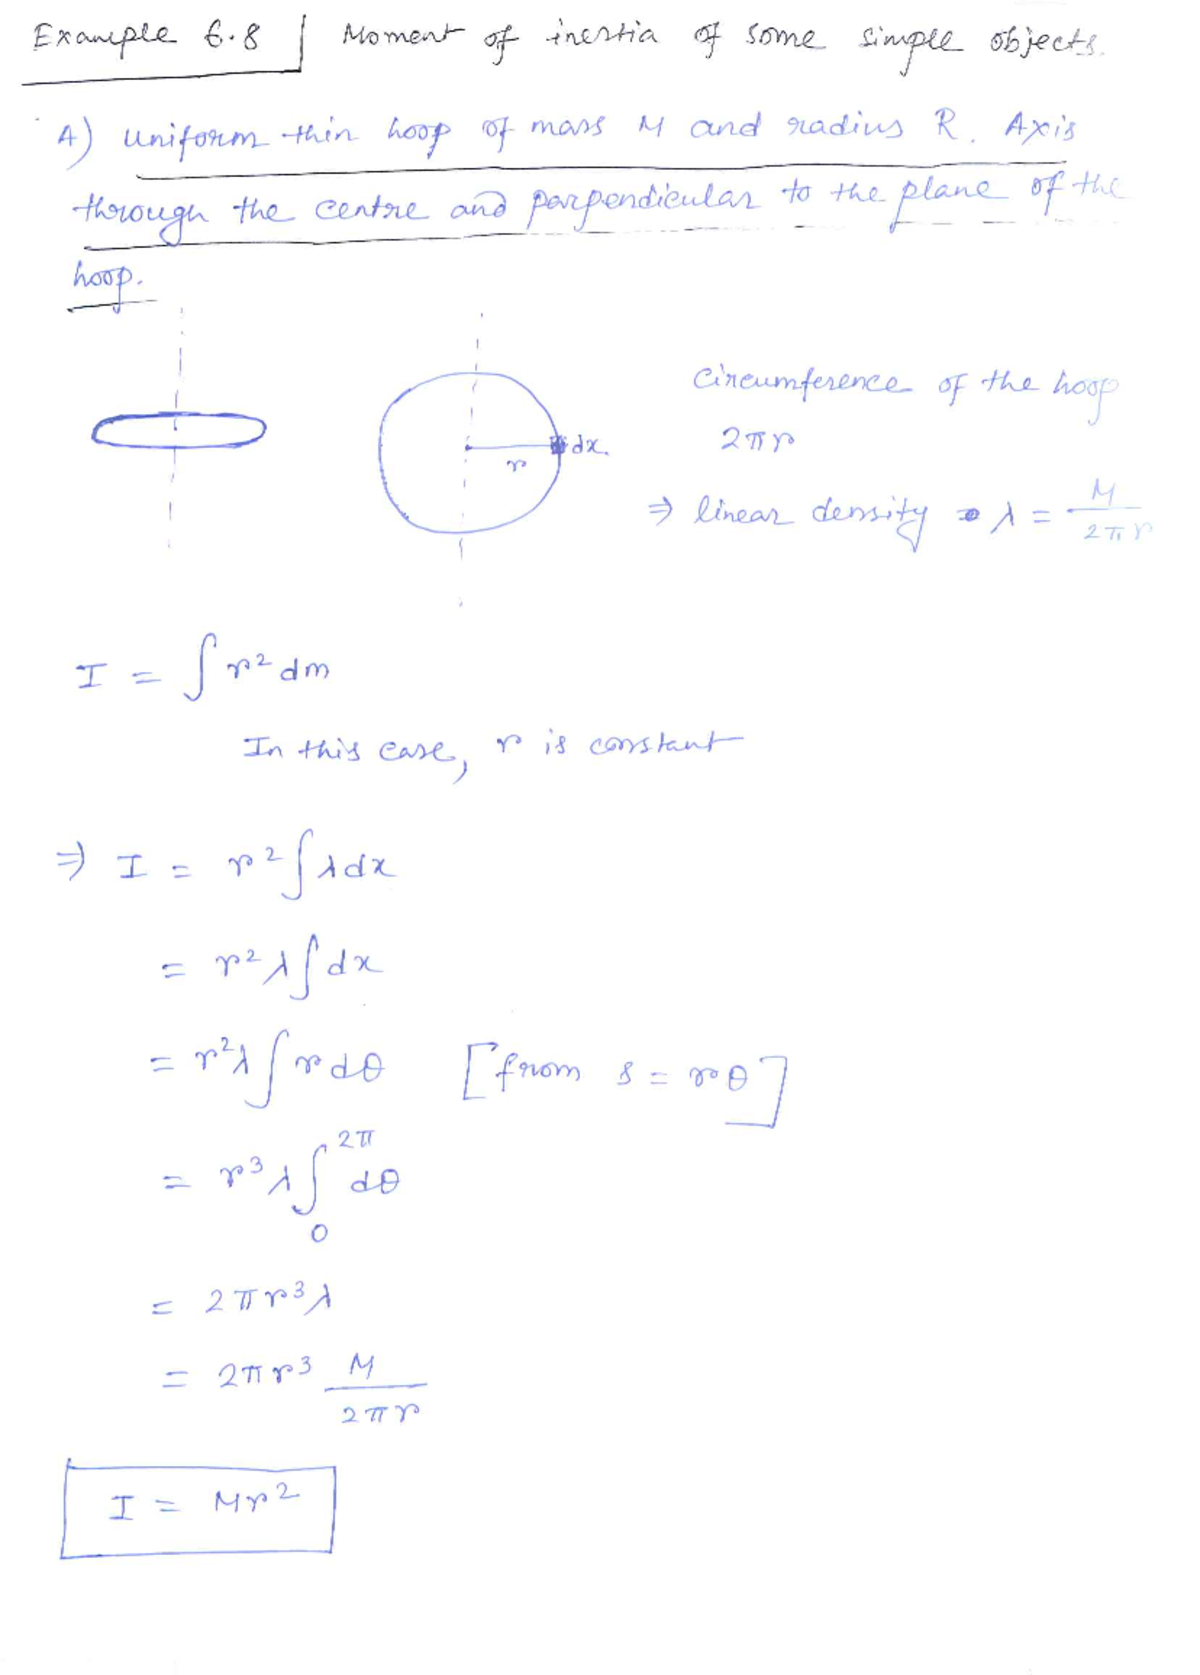 Example 6.8 | Moment of inertia of some simple objects.
A) uniform thin hoop of mass M and radius R. Axis
through the centre and parpendicular to the plane of the
hoop.
Circumference of the hoop
2πr
r dx.
⇒ linear density λ = M / 2πr
I = ∫ r² dm
In this case, r is constant
⇒ I = r² ∫ λ dx
= r² λ ∫ dx
= r² λ ∫ r dθ [from s = rθ]
= r³ λ ∫₀^2π dθ
= 2πr³ λ
= 2πr³ M / 2πr
I = Mr²